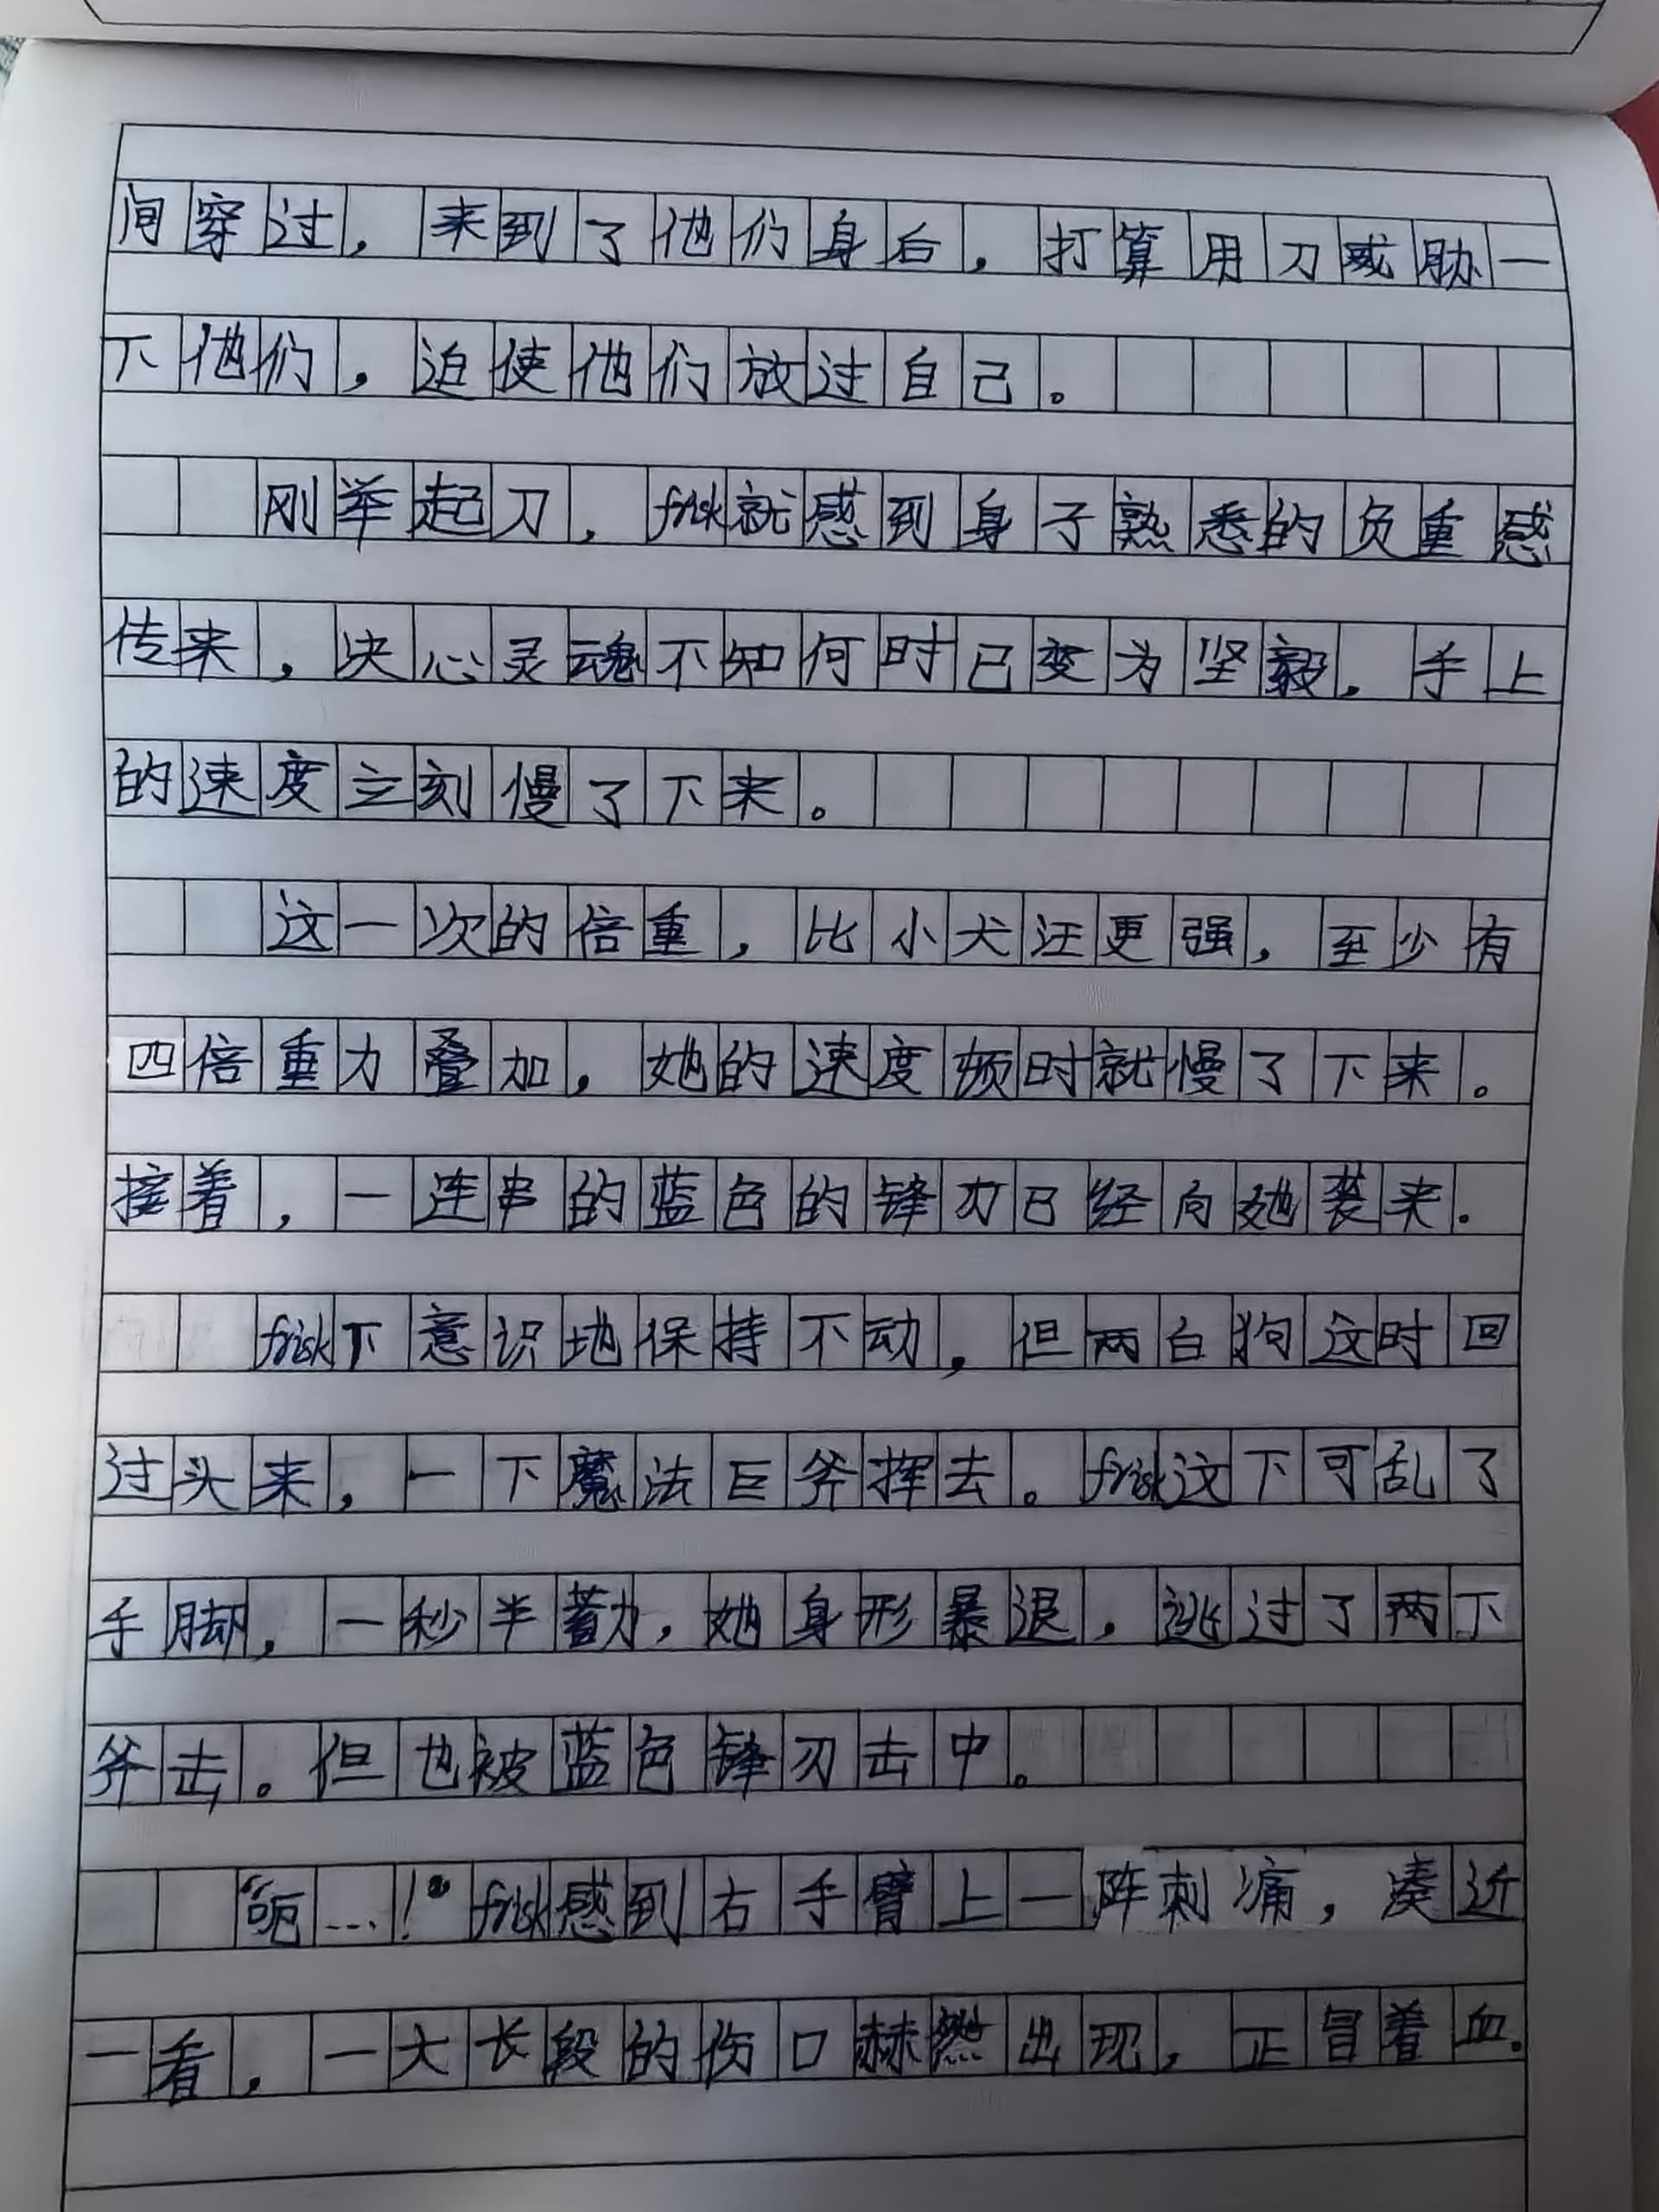 间穿过，来到了他们身后，打算用刀威胁一
下他们，迫使他们放过自己。
刚举起刀，frisk就感到身子熟悉的负重感
传来，决心灵魂不知何时已变为坚毅，手上
的速度立刻慢了下来。
这一次的倍重，比小犬汪更强，至少有
四倍重力叠加，她的速度顿时就慢了下来。
接着，一连串的蓝色的锋刃已经向她袭来.
frisk下意识地保持不动，但两白狗这时回
过头来，一下魔法巨斧挥去。frisk这下可乱了
手脚，一秒半蓄力，她身形暴退，逃过了两下
斧击。但也被蓝色锋刃击中。
“呃…！”frisk感到右手臂上一阵刺痛，凑近
一看，一大长段的伤口赫然出现，正冒着血。